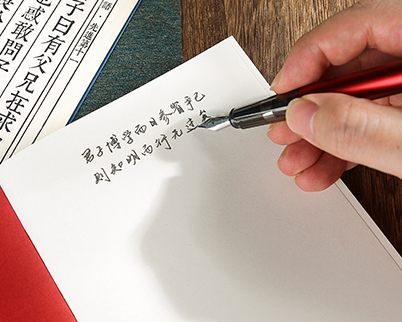 语·先進第十一
子曰有父兄在求
惑敢問子
君子博学而日参省乎己
则知明而行无过矣